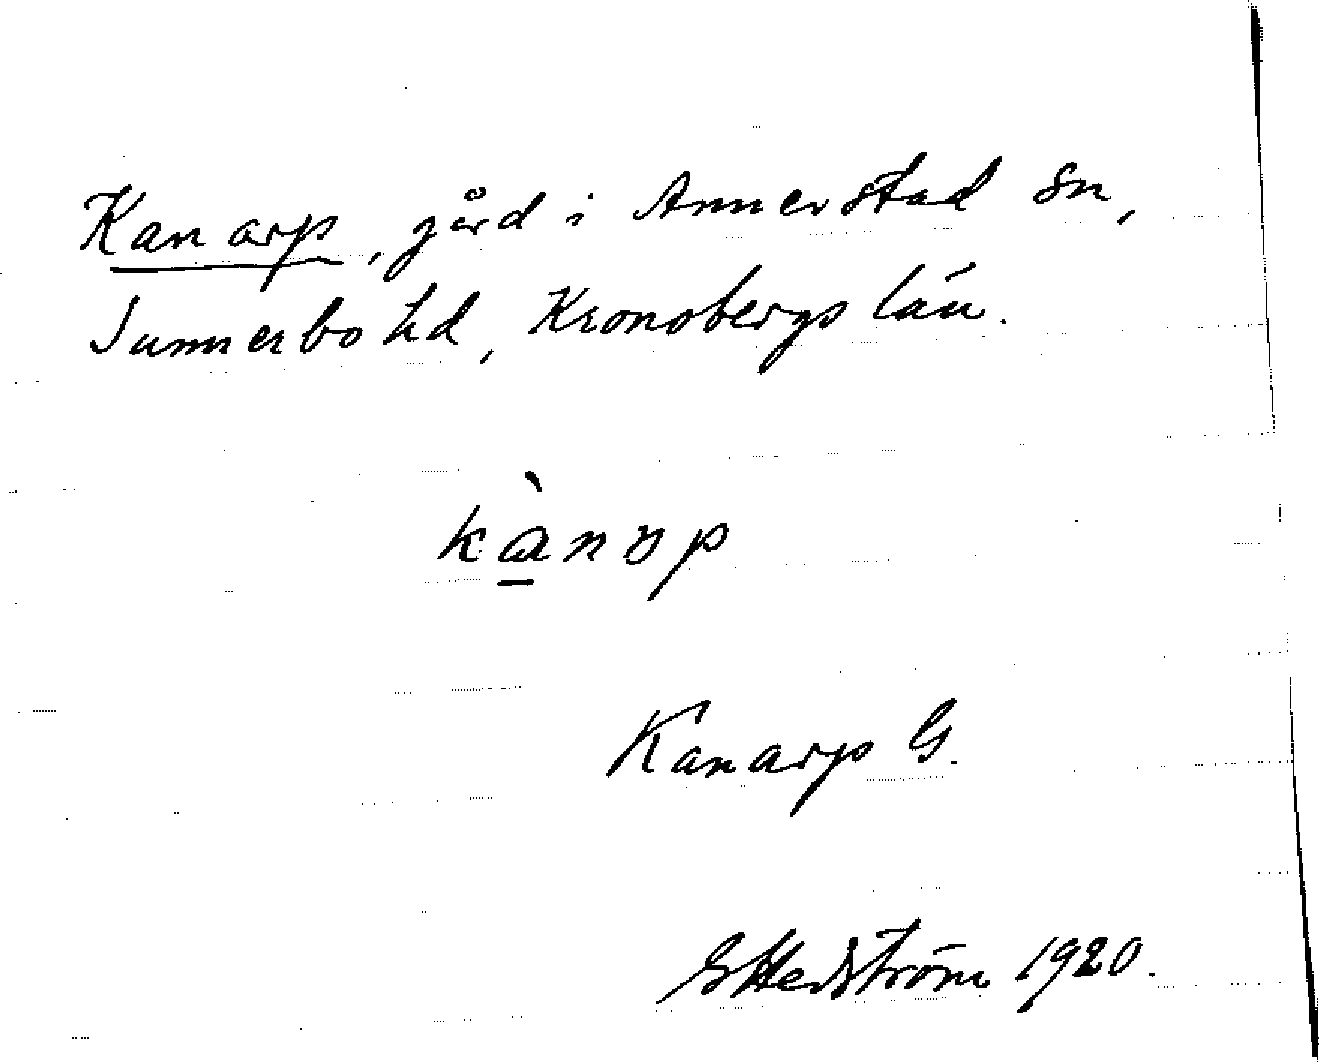 Kanarp, gård i Annerstad sn,
Sunnerbo hd, Kronobergs län.
kànap
Kanarp G.
G Hedström 1920.